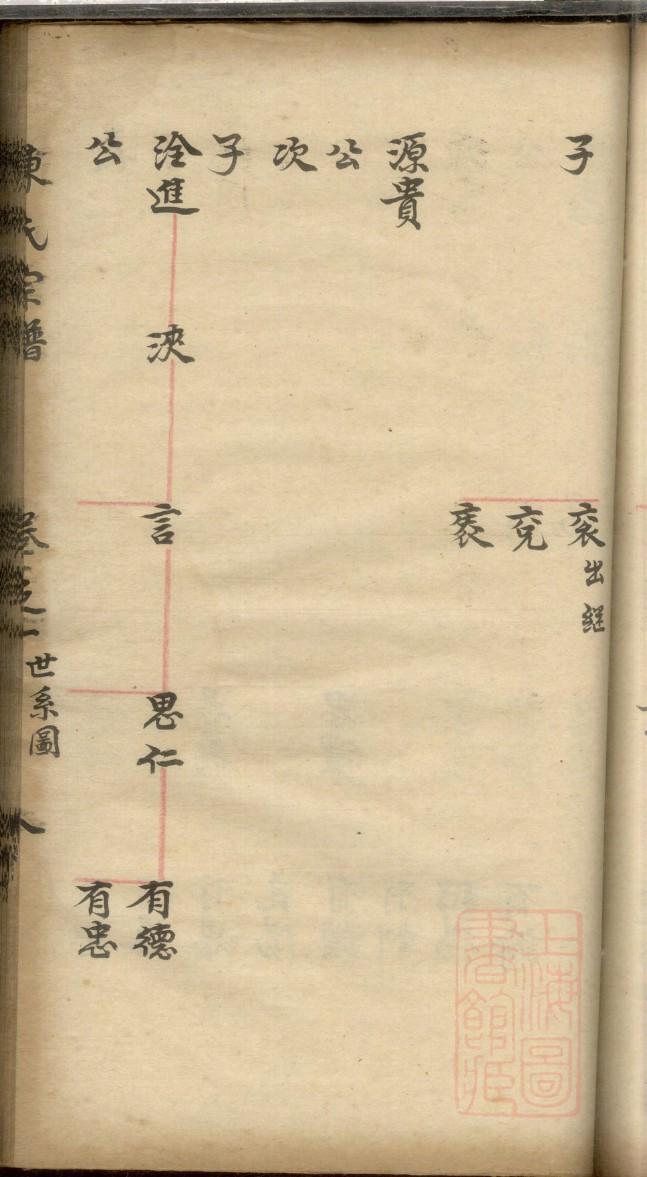 子
衮出継
兖
袠
源貴
公
次
子
淦進
泱
言
思仁
有德
有忠
公
陳氏宗譜
卷之一
世系圖
八
上海圖
書館藏